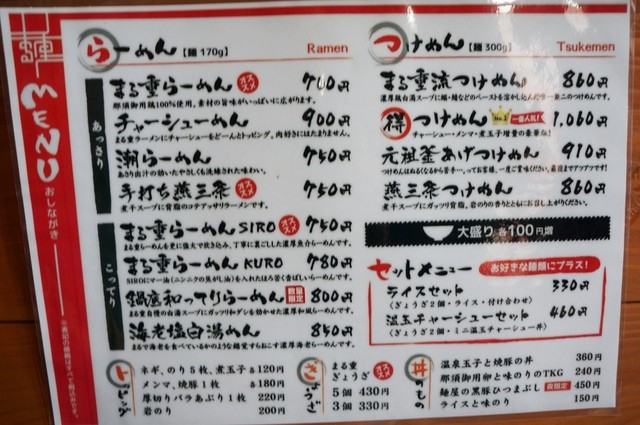 MENU
おしながき
※表記の価格はすべて税込みです。
らーめん【麺 170g】 Ramen
あっさり
まる重らーめん オススメ 700円
那須御用鶏100%使用。素材の旨味がいっぱいに広がります。
チャーシューめん 900円
まる重ラーメンにチャーシューをどーんとトッピング。肉好きにはたまりません。
潮らーめん 750円
あさり出汁の効いたやさしくも洗練された味わい。
手打ち燕三条 オススメ 750円
煮干スープに背脂のコテアッサリラーメンです。
こってり
まる重らーめん SIRO オススメ 750円
まる重らーめんを更に強火で炊き込み、丁寧に裏ごしした濃厚魚介らーめんです。
まる重らーめん KURO 780円
SIROにマー油(ニンニクの焦がし油)を入れたほろ苦く香ばしいらーめんです。
鍋底和ってりらーめん 数量限定 800円
まる重自慢の白湯スープにガッツリ和ダシを効かせた濃厚和風らーめんです。
海老塩白湯めん 850円
まるで海老を食べているかのような錯覚すらおこす濃厚海老らーめんです。
つけめん【麺 300g】 Tsukemen
まる重流つけめん 860円
濃厚鶏白湯スープに鰯・鯖などのペーストを溶かし込んだ唯一無二のつけめんです。
得 つけめん No.1 一番人気! 1,060円
チャーシュー・メンマ・煮玉子増量の豪華な!
元祖釜あげつけめん 910円
つけめんはぬるくなるから苦手…。ってお客様、一度ご賞味ください。最後までアツアツです!
燕三条つけめん 860円
煮干スープにガッツリ背脂。岩のりの香りとともにお召し上がりください。
大盛り 各100円増
セットメニュー お好きな麺類にプラス!
ライスセット 330円
(ぎょうざ2個・ライス・付け合わせ)
温玉チャーシューセット 460円
(ぎょうざ2個・ミニ温玉チャーシュー丼)
トッピング
ネギ、のり5枚、煮玉子 各120円
メンマ、焼豚1枚 各180円
厚切りバラあぶり1枚 220円
岩のり 200円
ぎょうざ
まる重ぎょうざ オススメ
5個 430円
3個 330円
丼もの
温泉玉子と焼豚の丼 360円
那須御用卵と味のりのTKG 240円
麺屋の黒豚ひつまぶし 夜限定 450円
ライスと味のり 150円